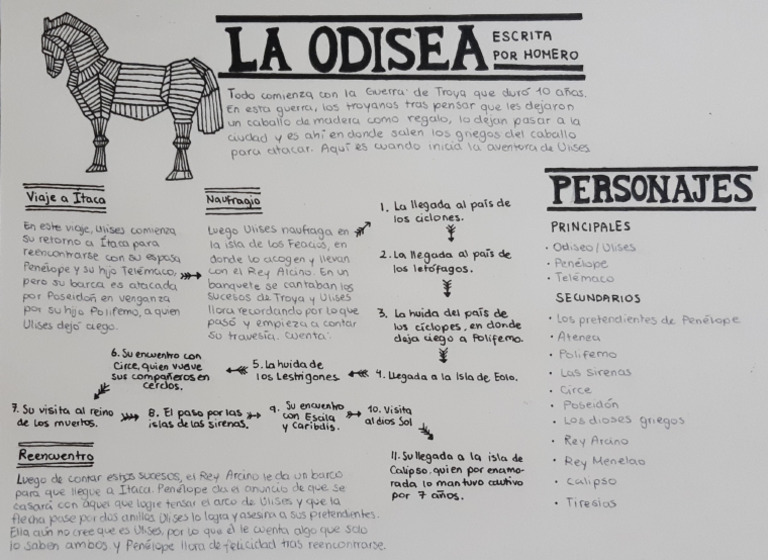 LA ODISEA
ESCRITA
POR HOMERO
Todo comienza con la Guerra de Troya que duró 10 años.
En esta guerra, los troyanos tras pensar que les dejaron
un caballo de madera como regalo, lo dejan pasar a la
ciudad y es ahí en donde salen los griegos del caballo
para atacar. Aquí es cuando inicia la aventura de Ulises
Viaje a Ítaca
En este viaje, Ulises comienza
su retorno a Ítaca para
reencontrarse con su esposa
Penélope y su hijo Telémaco,
pero su barca es atacada
por Poseidón en venganza
por su hijo Polifemo, a quien
Ulises dejó ciego.
Naufragio
Luego Ulises naufraga en
la isla de los Feacios, en
donde lo acogen y llevan
con el Rey Alcino. En un
banquete se cantaban los
sucesos de Troya y Ulises
llora recordando por lo que
pasó y empieza a contar
su travesía. Cuenta:
1. La llegada al país de
los ciclones.
2. La llegada al país de
los letófagos.
3. La huida del país de
los cíclopes, en donde
deja ciego a Polifemo.
4. Llegada a la Isla de Eolo.
5. La huida de
los Lestrigones
6. Su encuentro con
Circe, quien vuelve
sus compañeros en
cerdos.
7. Su visita al reino
de los muertos.
8. El paso por las
islas de las sirenas.
9. Su encuentro
con Escila
y Caribdis.
10. Visita
al dios Sol
11. Su llegada a la isla de
Calipso, quien por enamo-
rada lo mantuvo cautivo
por 7 años.
Reencuentro
Luego de contar estos sucesos, el Rey Arcino le da un barco
para que llegue a Ítaca. Penélope da el anuncio de que se
casará con aquel que logre tensar el arco de Ulises y que la
flecha pase por dos anillas. Ulises lo logra y asesina a sus pretendientes.
Ella aún no cree que es Ulises, por lo que él le cuenta algo que solo
lo saben ambos y Penélope llora de felicidad tras reencontrarse.
PERSONAJES
PRINCIPALES
• Odiseo/Ulises
• Penélope
• Telémaco
SECUNDARIOS
• Los pretendientes de Penélope
• Atenea
• Polifemo
• Las sirenas
• Circe
• Poseidón
• Los dioses griegos
• Rey Arcino
• Rey Menelao
• Calipso
• Tiresias